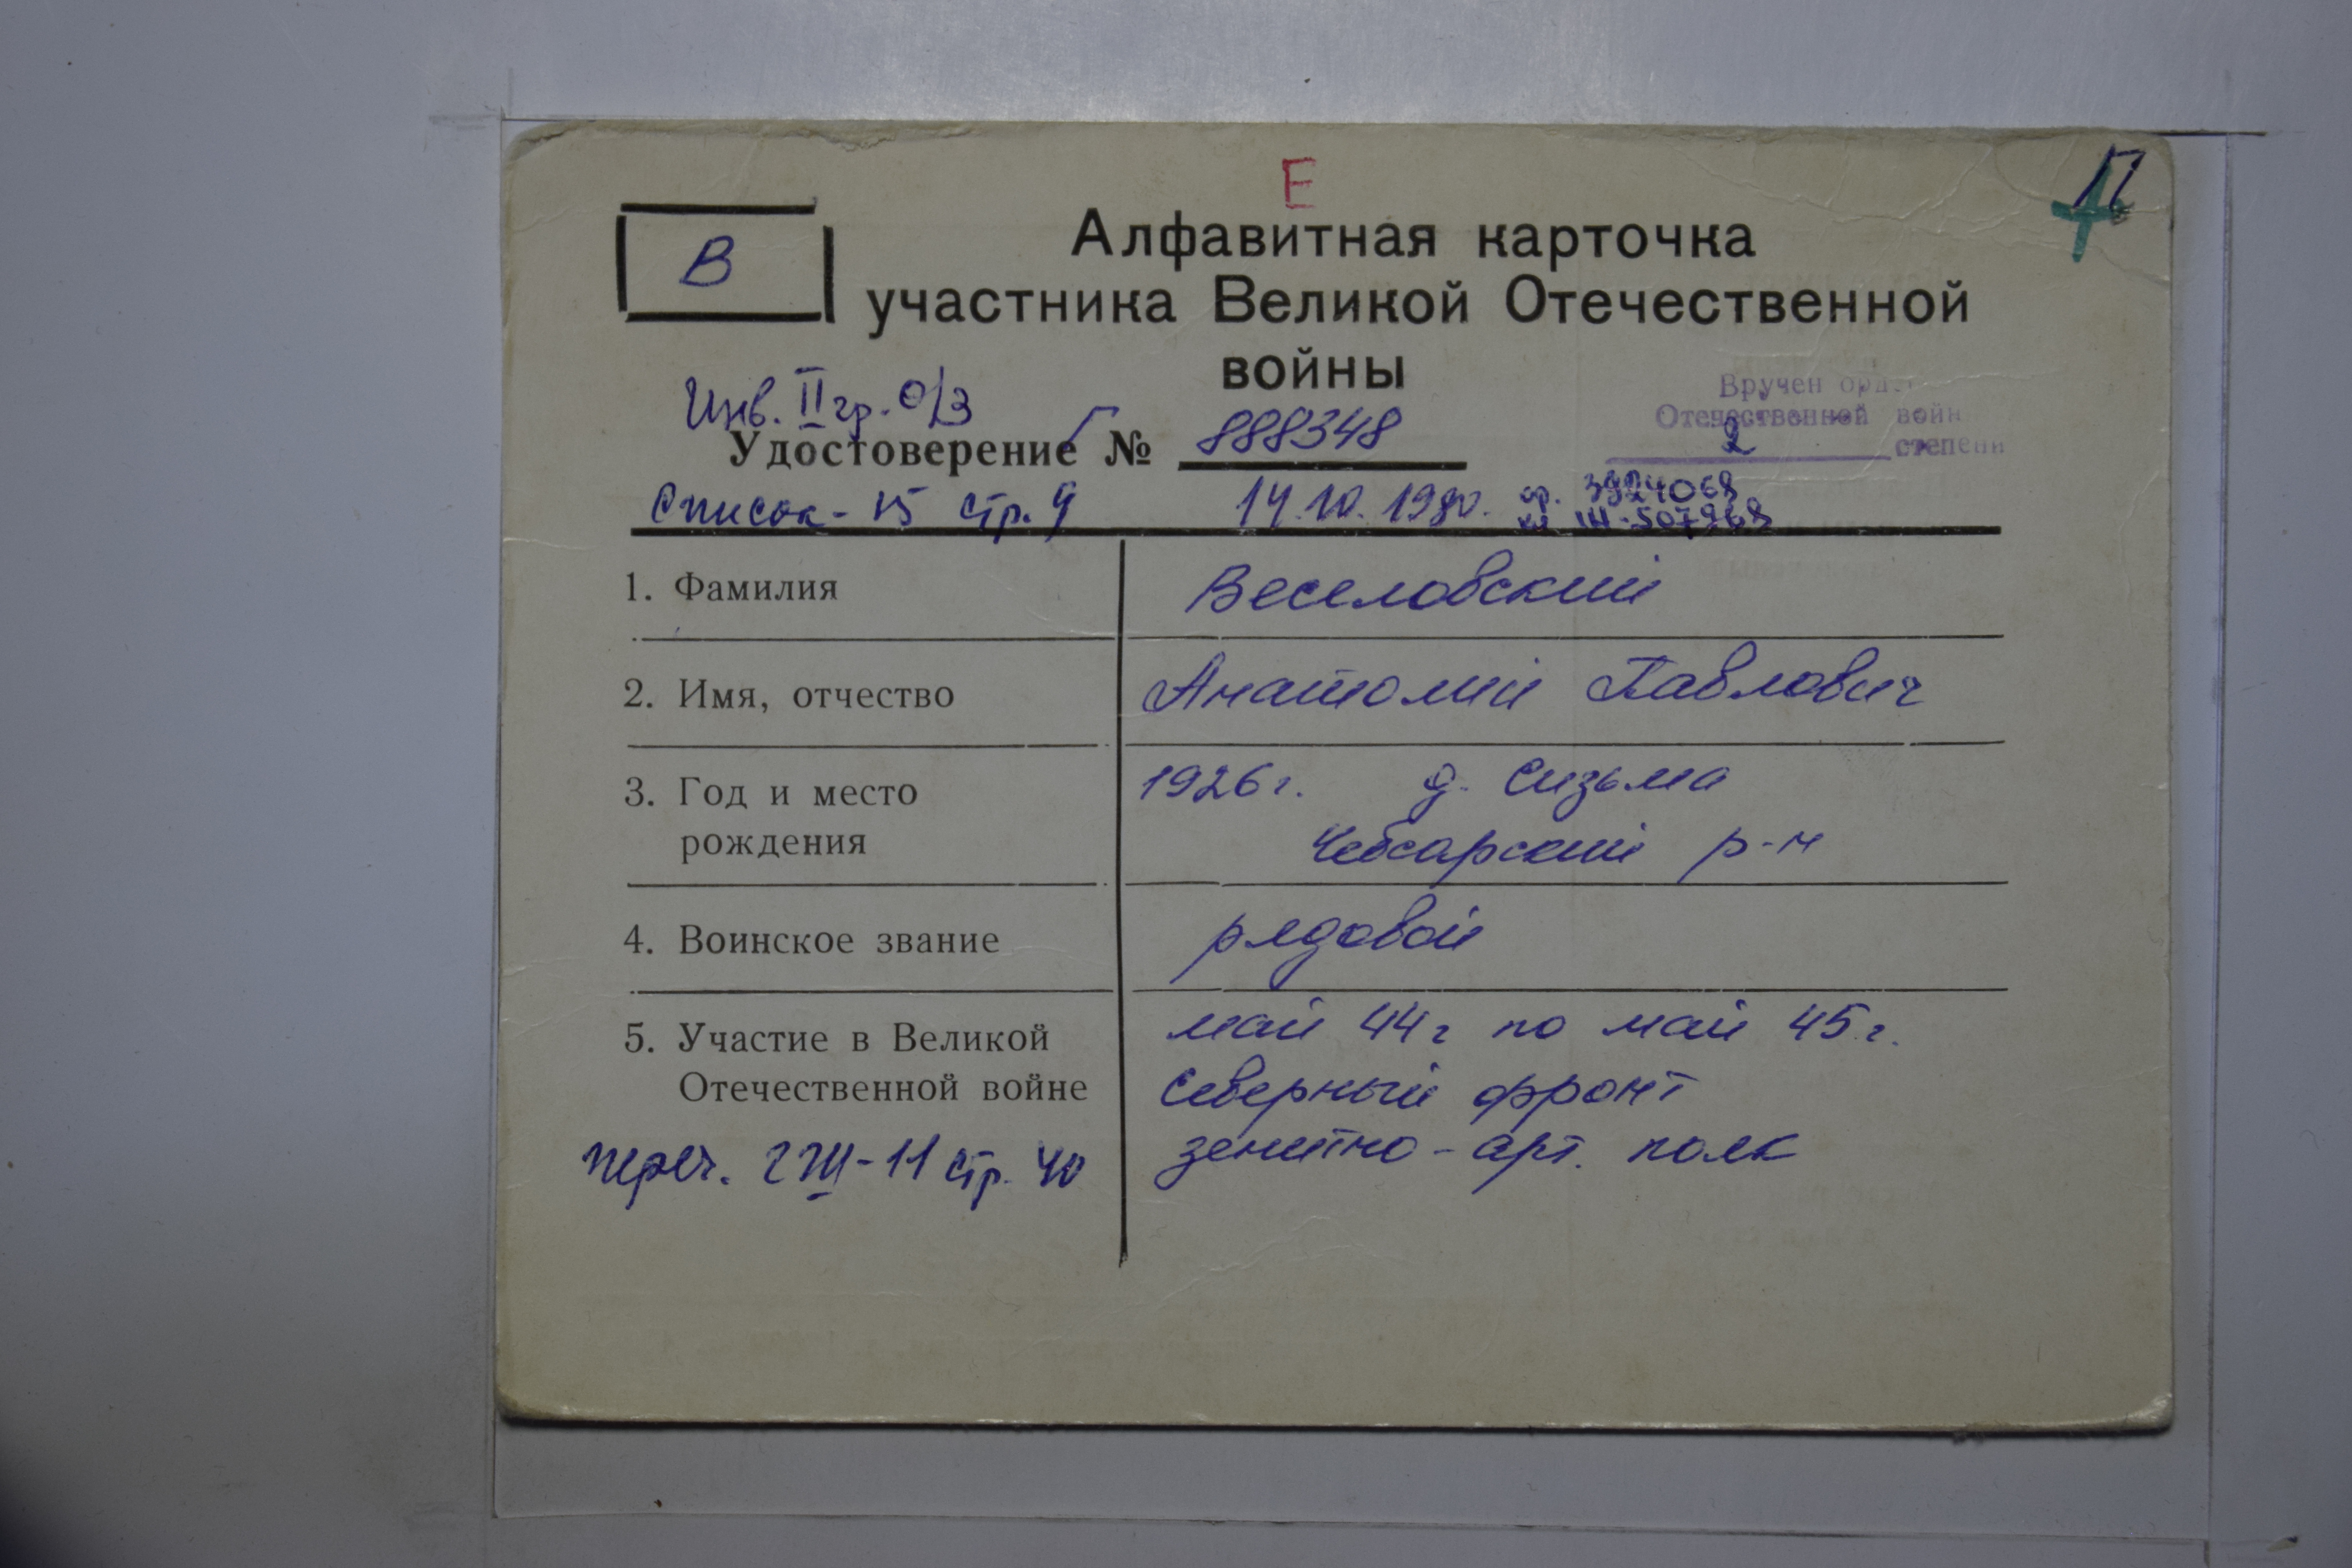 Е
П
Алфавитная карточка
В
участника Великой Отечественной
войны
Инв. II гр. О/З
Вручен орд
Отечественной войн
2 степени
Удостоверение № 888348
Список - 15 стр. 9
14.10.1980.
ор. 3924068
1. Фамилия
Веселовский
2. Имя, отчество
Анатолий Павлович
3. Год и место
рождения
1926 г. д. Сизьма
Чебсарский р-н
4. Воинское звание
рядовой
5. Участие в Великой
Отечественной войне
май 44 г по май 45 г.
Северный фронт
зенитно - арт. полк
стр. 40